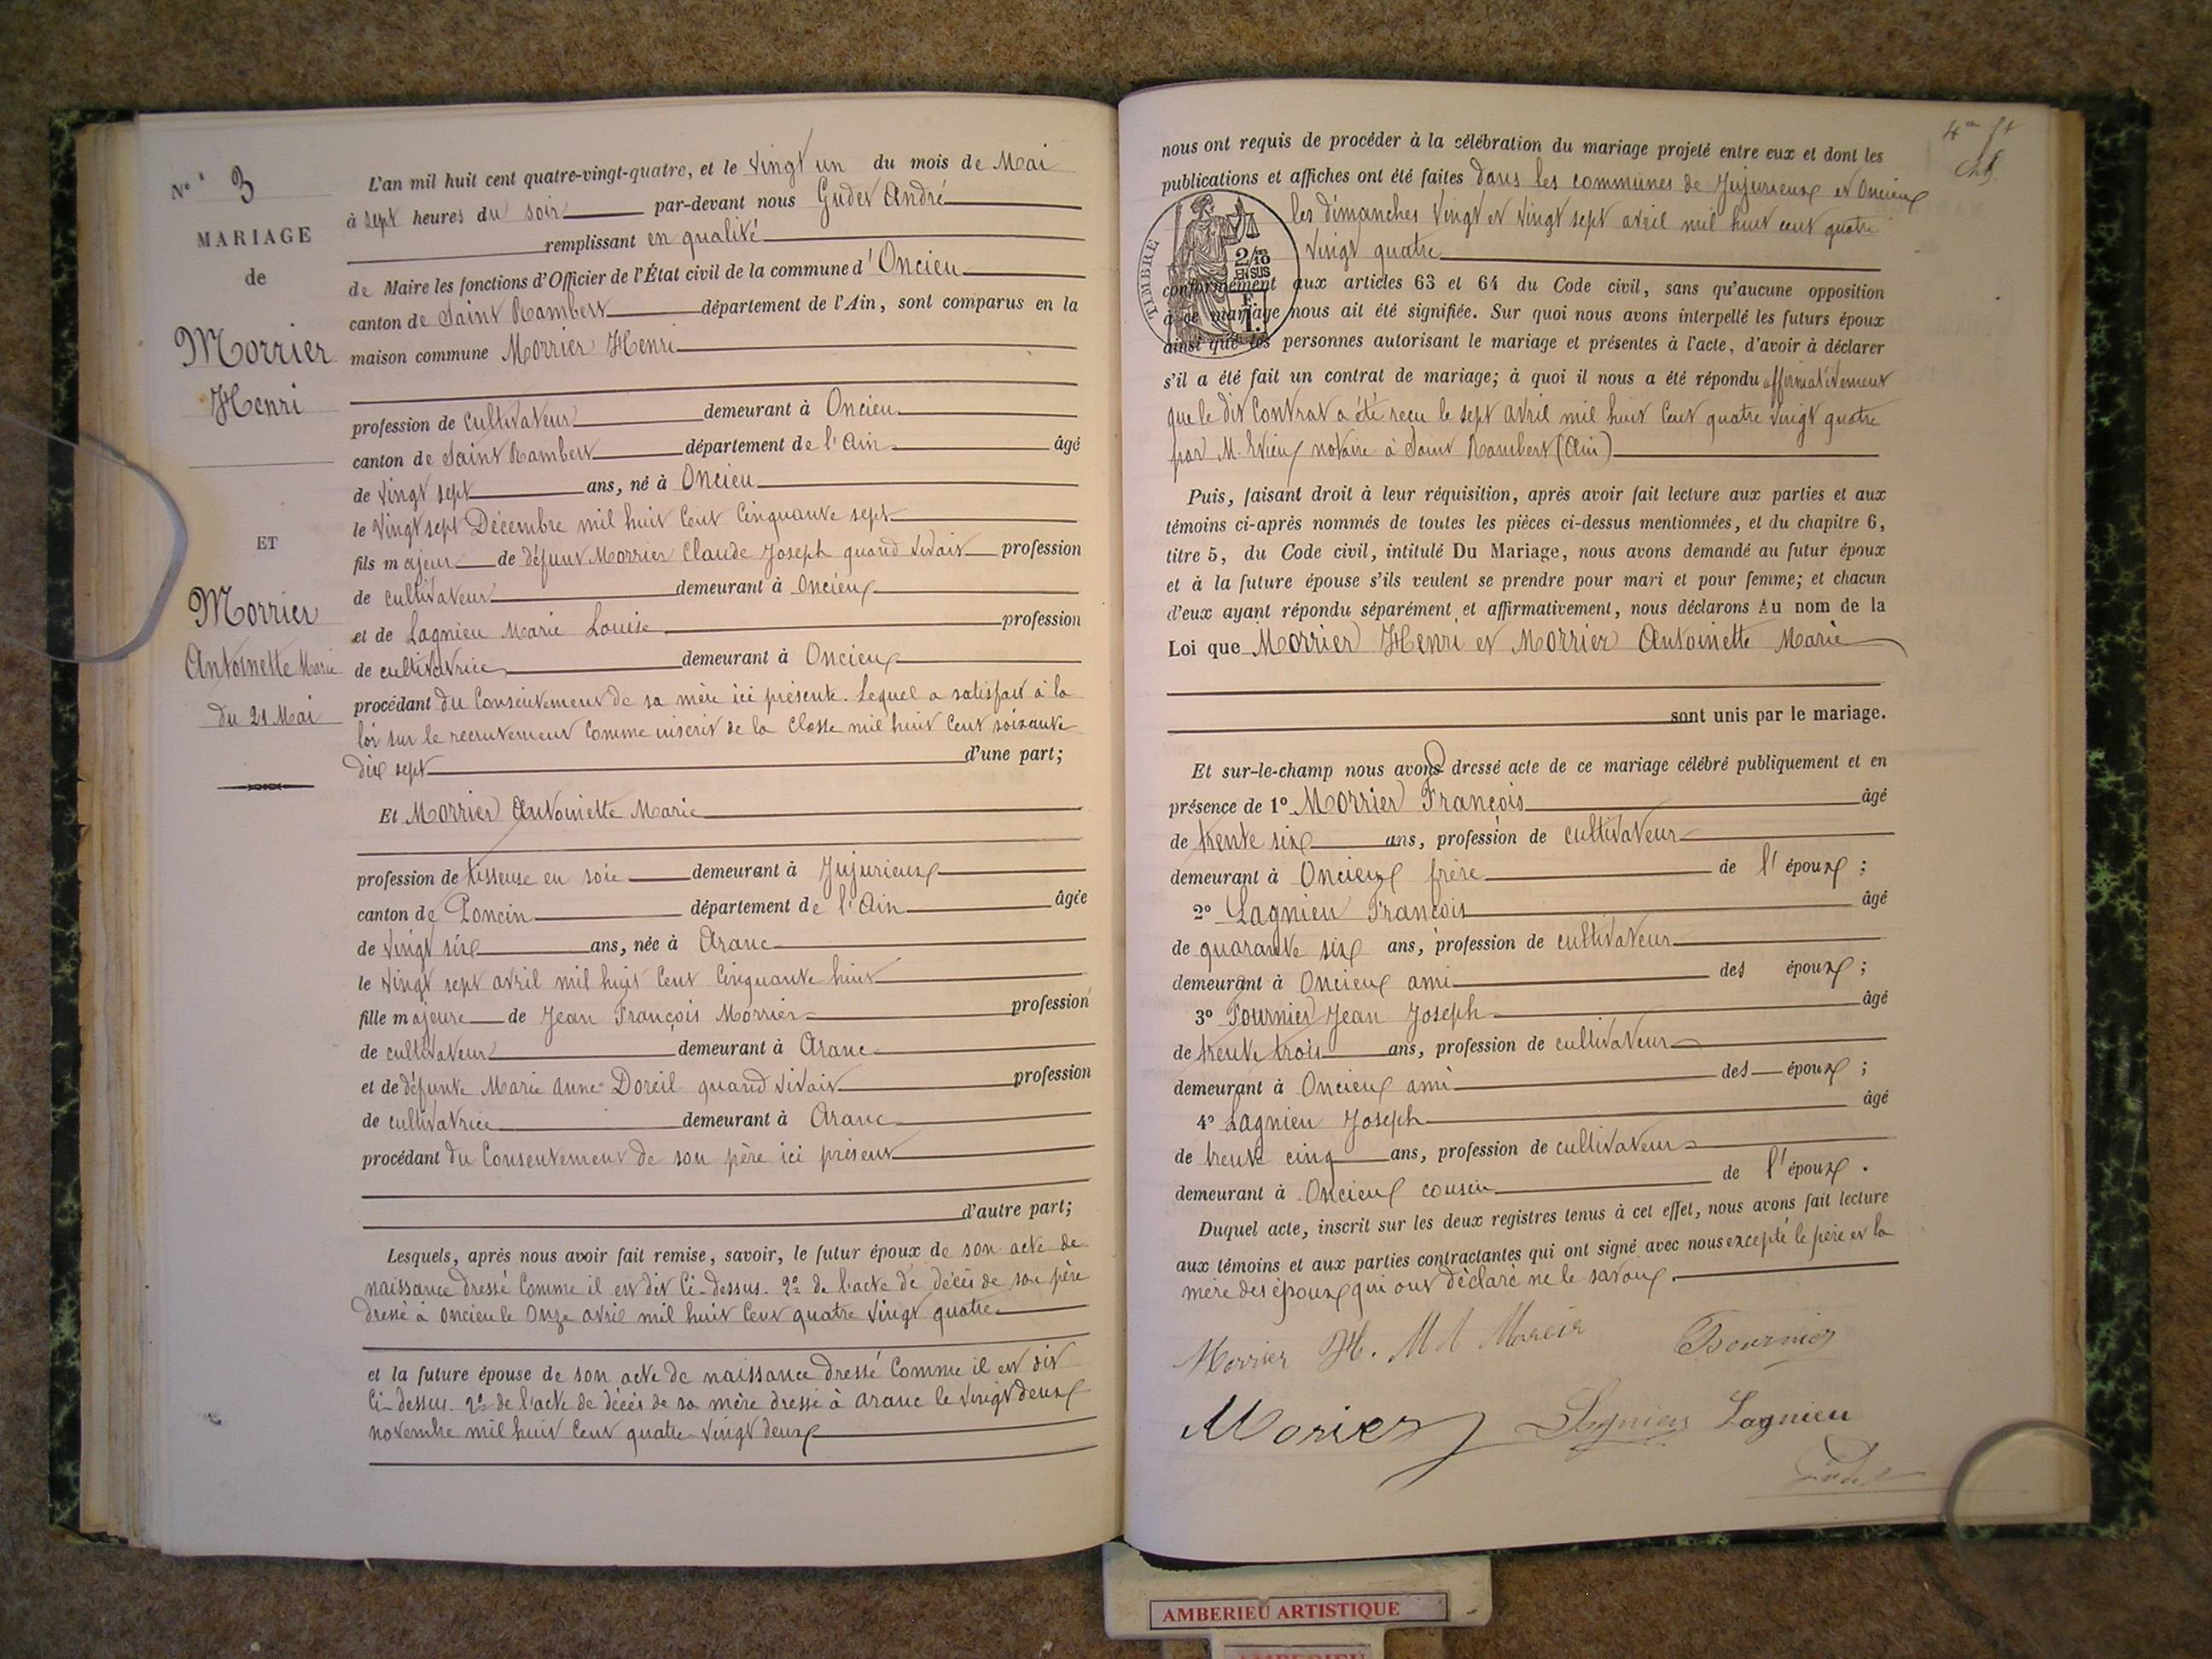 N° 3
MARIAGE
de
Morrier
Henri
ET
Morrier
Antoinette Marie
du 21 Mai
L'an mil huit cent quatre-vingt-quatre, et le vingt un du mois de Mai
à sept heures du soir par-devant nous Gudet André
remplissant en qualité
de Maire les fonctions d'Officier de l'État civil de la commune d'Oncieu
canton de Saint Rambert département de l'Ain, sont comparus en la
maison commune Morrier Henri
profession de cultivateur demeurant à Oncieu
canton de Saint Rambert département de l'Ain âgé
de vingt sept ans, né à Oncieu
le vingt sept Décembre mil huit cent cinquante sept
fils majeur de défunt Morrier Claude Joseph quand vivait profession
de cultivateur demeurant à Oncieux
et de Lagnieu Marie Louise profession
de cultivatrice demeurant à Oncieux
procédant du Consentement de sa mère ici présente. Lequel a satisfait à la
loi sur le recrutement comme inscrit de la classe mil huit cent soixante
dix sept d'une part;
Et Morrier Antoinette Marie
profession de tisseuse en soie demeurant à Jujurieux
canton de Poncin département de l'Ain âgée
de vingt six ans, née à Aranc
le vingt sept avril mil huit cent cinquante huit
fille majeure de Jean François Morrier profession
de cultivateur demeurant à Aranc
et de défunte Marie Anne Doreil quand vivait profession
de cultivatrice demeurant à Aranc
procédant du Consentement de son père ici présent
d'autre part;
Lesquels, après nous avoir fait remise, savoir, le futur époux de son acte de
naissance dressé comme il est dit ci-dessus. 2° de l'acte de décès de son père
dressé à Oncieu le onze avril mil huit cent quatre vingt quatre
et la future épouse de son acte de naissance dressé comme il est dit
ci-dessus. 2° de l'acte de décès de sa mère dressé à Aranc le vingt deux
novembre mil huit cent quatre-vingt deux
nous ont requis de procéder à la célébration du mariage projeté entre eux et dont les
publications et affiches ont été faites dans les communes de Jujurieux et Oncieux
les dimanches vingt et vingt sept avril mil huit cent quatre
vingt quatre
TIMBRE
2/10
EN SUS
F.
1.
conformément aux articles 63 et 64 du Code civil, sans qu'aucune opposition
à ce mariage nous ait été signifiée. Sur quoi nous avons interpellé les futurs époux
ainsi que les personnes autorisant le mariage et présentes à l'acte, d'avoir à déclarer
s'il a été fait un contrat de mariage; à quoi il nous a été répondu affirmativement
que le dit contrat a été reçu le sept avril mil huit cent quatre vingt quatre
par M. notaire à Saint Rambert (Ain)
Puis, faisant droit à leur réquisition, après avoir fait lecture aux parties et aux
témoins ci-après nommés de toutes les pièces ci-dessus mentionnées, et du chapitre 6,
titre 5, du Code civil, intitulé Du Mariage, nous avons demandé au futur époux
et à la future épouse s'ils veulent se prendre pour mari et pour femme; et chacun
d'eux ayant répondu séparément et affirmativement, nous déclarons Au nom de la
Loi que Morrier Henri et Morrier Antoinette Marie
sont unis par le mariage.
Et sur-le-champ nous avons dressé acte de ce mariage célébré publiquement et en
présence de 1° Morrier François âgé
de trente six ans, profession de cultivateur
demeurant à Oncieux frère de l'époux;
2° Lagnieu François âgé
de quarante six ans, profession de cultivateur
demeurant à Oncieux ami des époux;
3° Fournier Jean Joseph âgé
de trente trois ans, profession de cultivateur
demeurant à Oncieux ami des époux;
4° Lagnieu Joseph âgé
de trente cinq ans, profession de cultivateur
demeurant à Oncieux cousin de l'époux.
Duquel acte, inscrit sur les deux registres tenus à cet effet, nous avons fait lecture
aux témoins et aux parties contractantes qui ont signé avec nous excepté le père et la
mère des époux qui ont déclaré ne le savoir.
Morrier H. Fournier
Morier Lagnieu Lagnieu
Gudet
AMBERIEU ARTISTIQUE
AMBERIEU